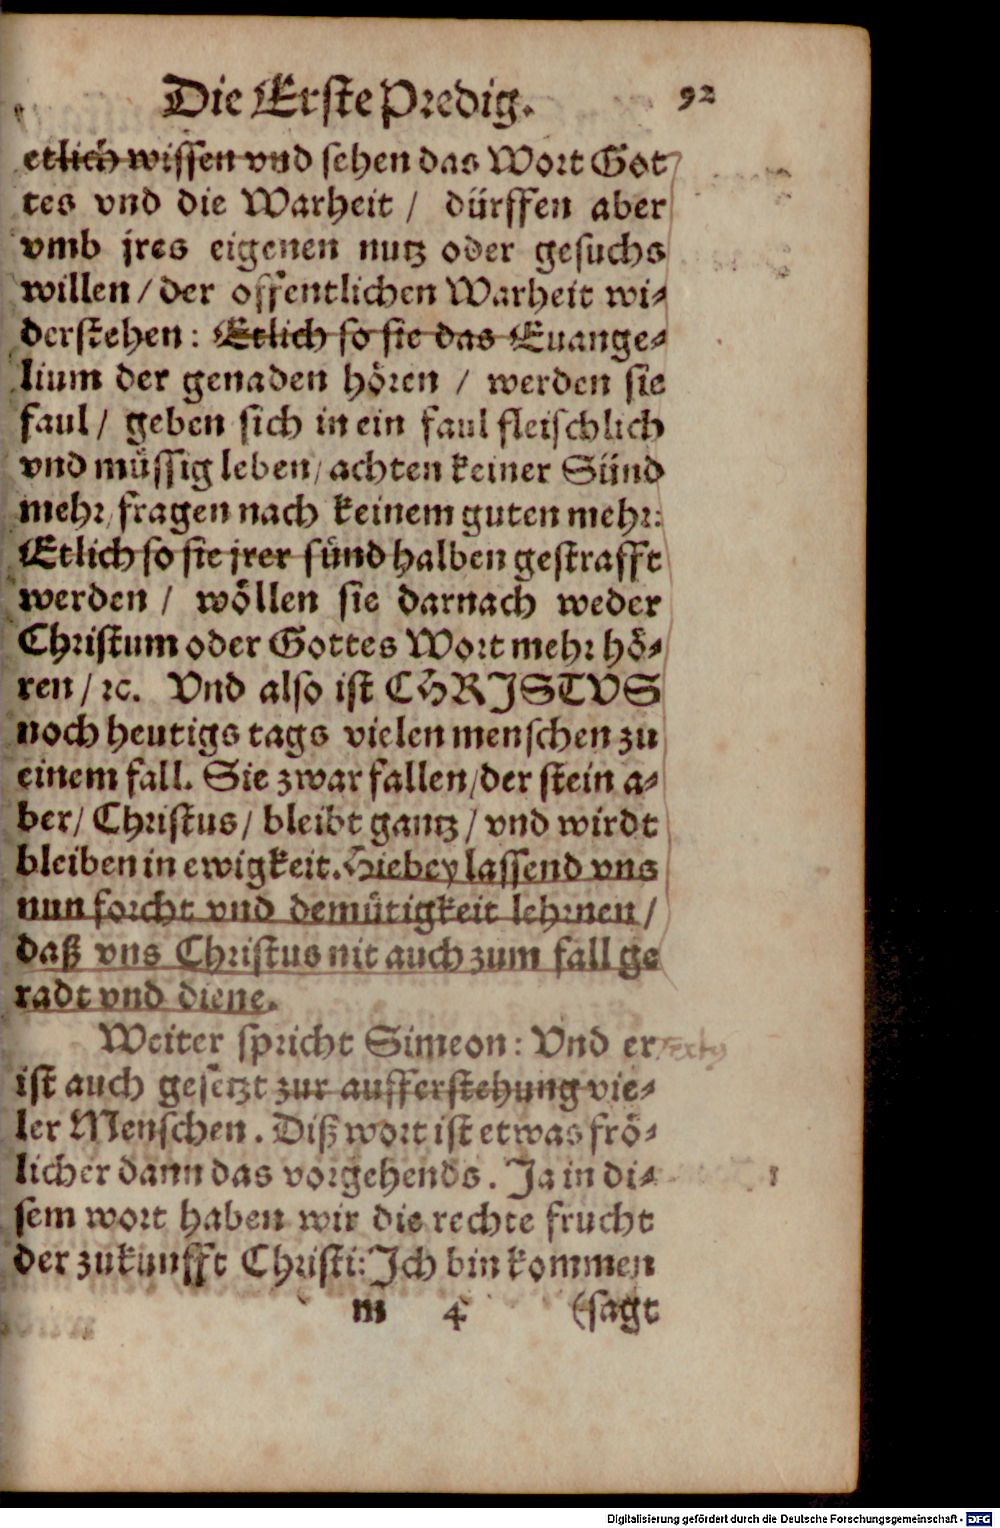 Die Erste Predig. 92
etlich wissen vnd sehen das Wort Got
tes vnd die Warheit / dürffen aber
vmb jres eigenen nutz oder gesuchs
willen / der offentlichen Warheit wi-
derstehen: Etlich so sie das Euange-
lium der genaden hören / werden sie
faul / geben sich in ein faul fleischlich
vnd müssig leben / achten keiner Sünd
mehr / fragen nach keinem guten mehr:
Etlich so sie jrer sünd halben gestrafft
werden / wöllen sie darnach weder
Christum oder Gottes Wort mehr hö-
ren / ꝛc. Vnd also ist CHRISTVS
noch heutigs tags vielen menschen zu
einem fall. Sie zwar fallen / der stein a-
ber / Christus / bleibt gantz / vnd wirdt
bleiben in ewigkeit. Hiebey lassend vns
nun forcht vnd demütigkeit lehrnen /
daß vns Christus nit auch zum fall ge
radt vnd diene.
Weiter spricht Simeon: Vnd er
ist auch gesetzt zur aufferstehung vie-
ler Menschen. Diß wort ist etwas frö-
licher dann das vorgehends. Ja in di- 1
sem wort haben wir die rechte frucht
der zukunfft Christi: Ich bin kommen
m 4 (sagt
Digitalisierung gefördert durch die Deutsche Forschungsgemeinschaft - DFG